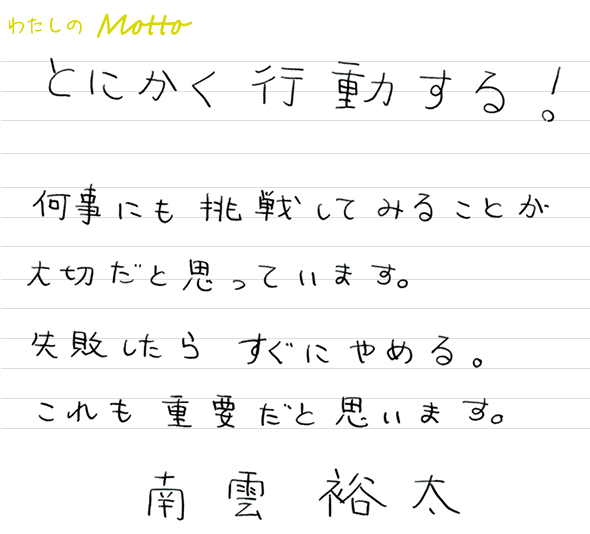 わたしの Motto
とにかく行動する!
何事にも挑戦してみることが
大切だと思っています。
失敗したら すぐにやめる。
これも重要だと思います。
南雲 裕太